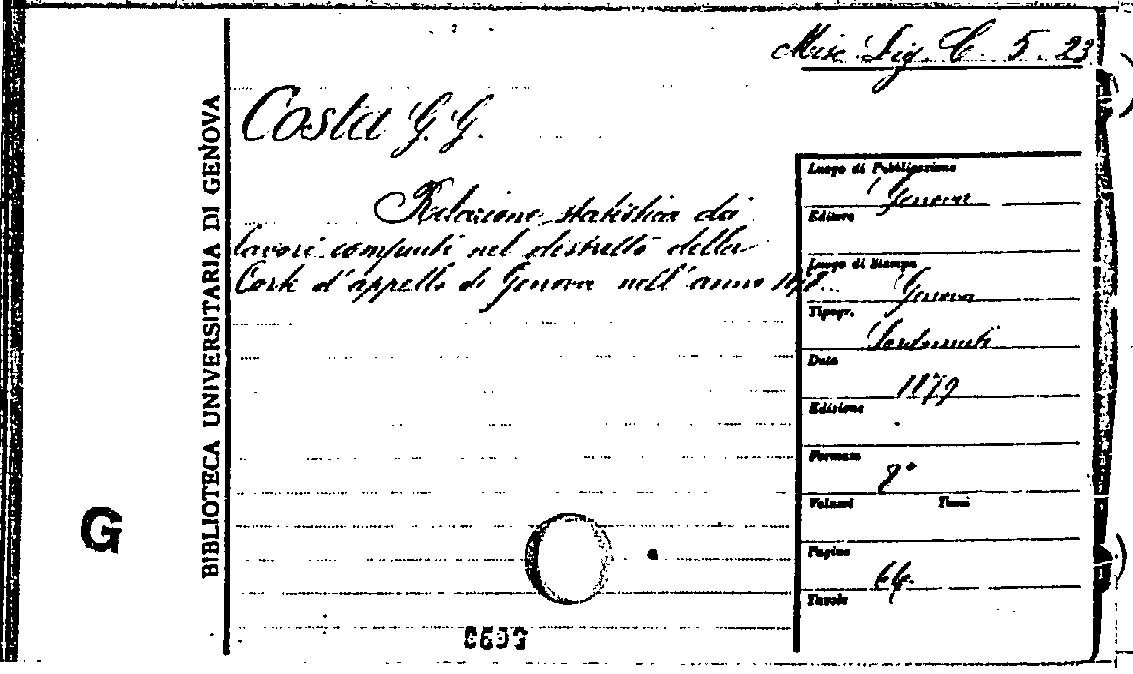 Misc. Lig. C. 5. 23
Costa G. G.
Relazione statistica dei
lavori compiuti nel distretto della
Corte d'appello di Genova nell'anno
BIBLIOTECA UNIVERSITARIA DI GENOVA
G
Luogo di Pubblicazione
Genova
Editore
Luogo di Stampa
Genova
Tipogr.
Data
1879
Edizione
Formato
8°
Volumi Tomi
Pagine
64
Tavole